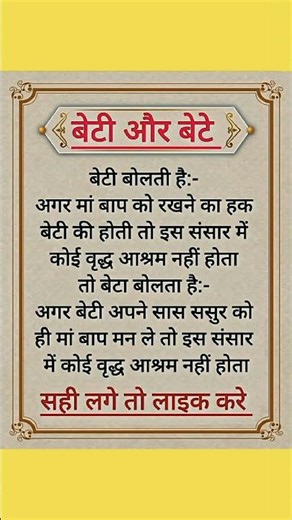 बेटी और बेटे
बेटी बोलती है:-
अगर मां बाप को रखने का हक
बेटी की होती तो इस संसार में
कोई वृद्ध आश्रम नहीं होता
तो बेटा बोलता है:-
अगर बेटी अपने सास ससुर को
ही मां बाप मन ले तो इस संसार
में कोई वृद्ध आश्रम नहीं होता
सही लगे तो लाइक करे